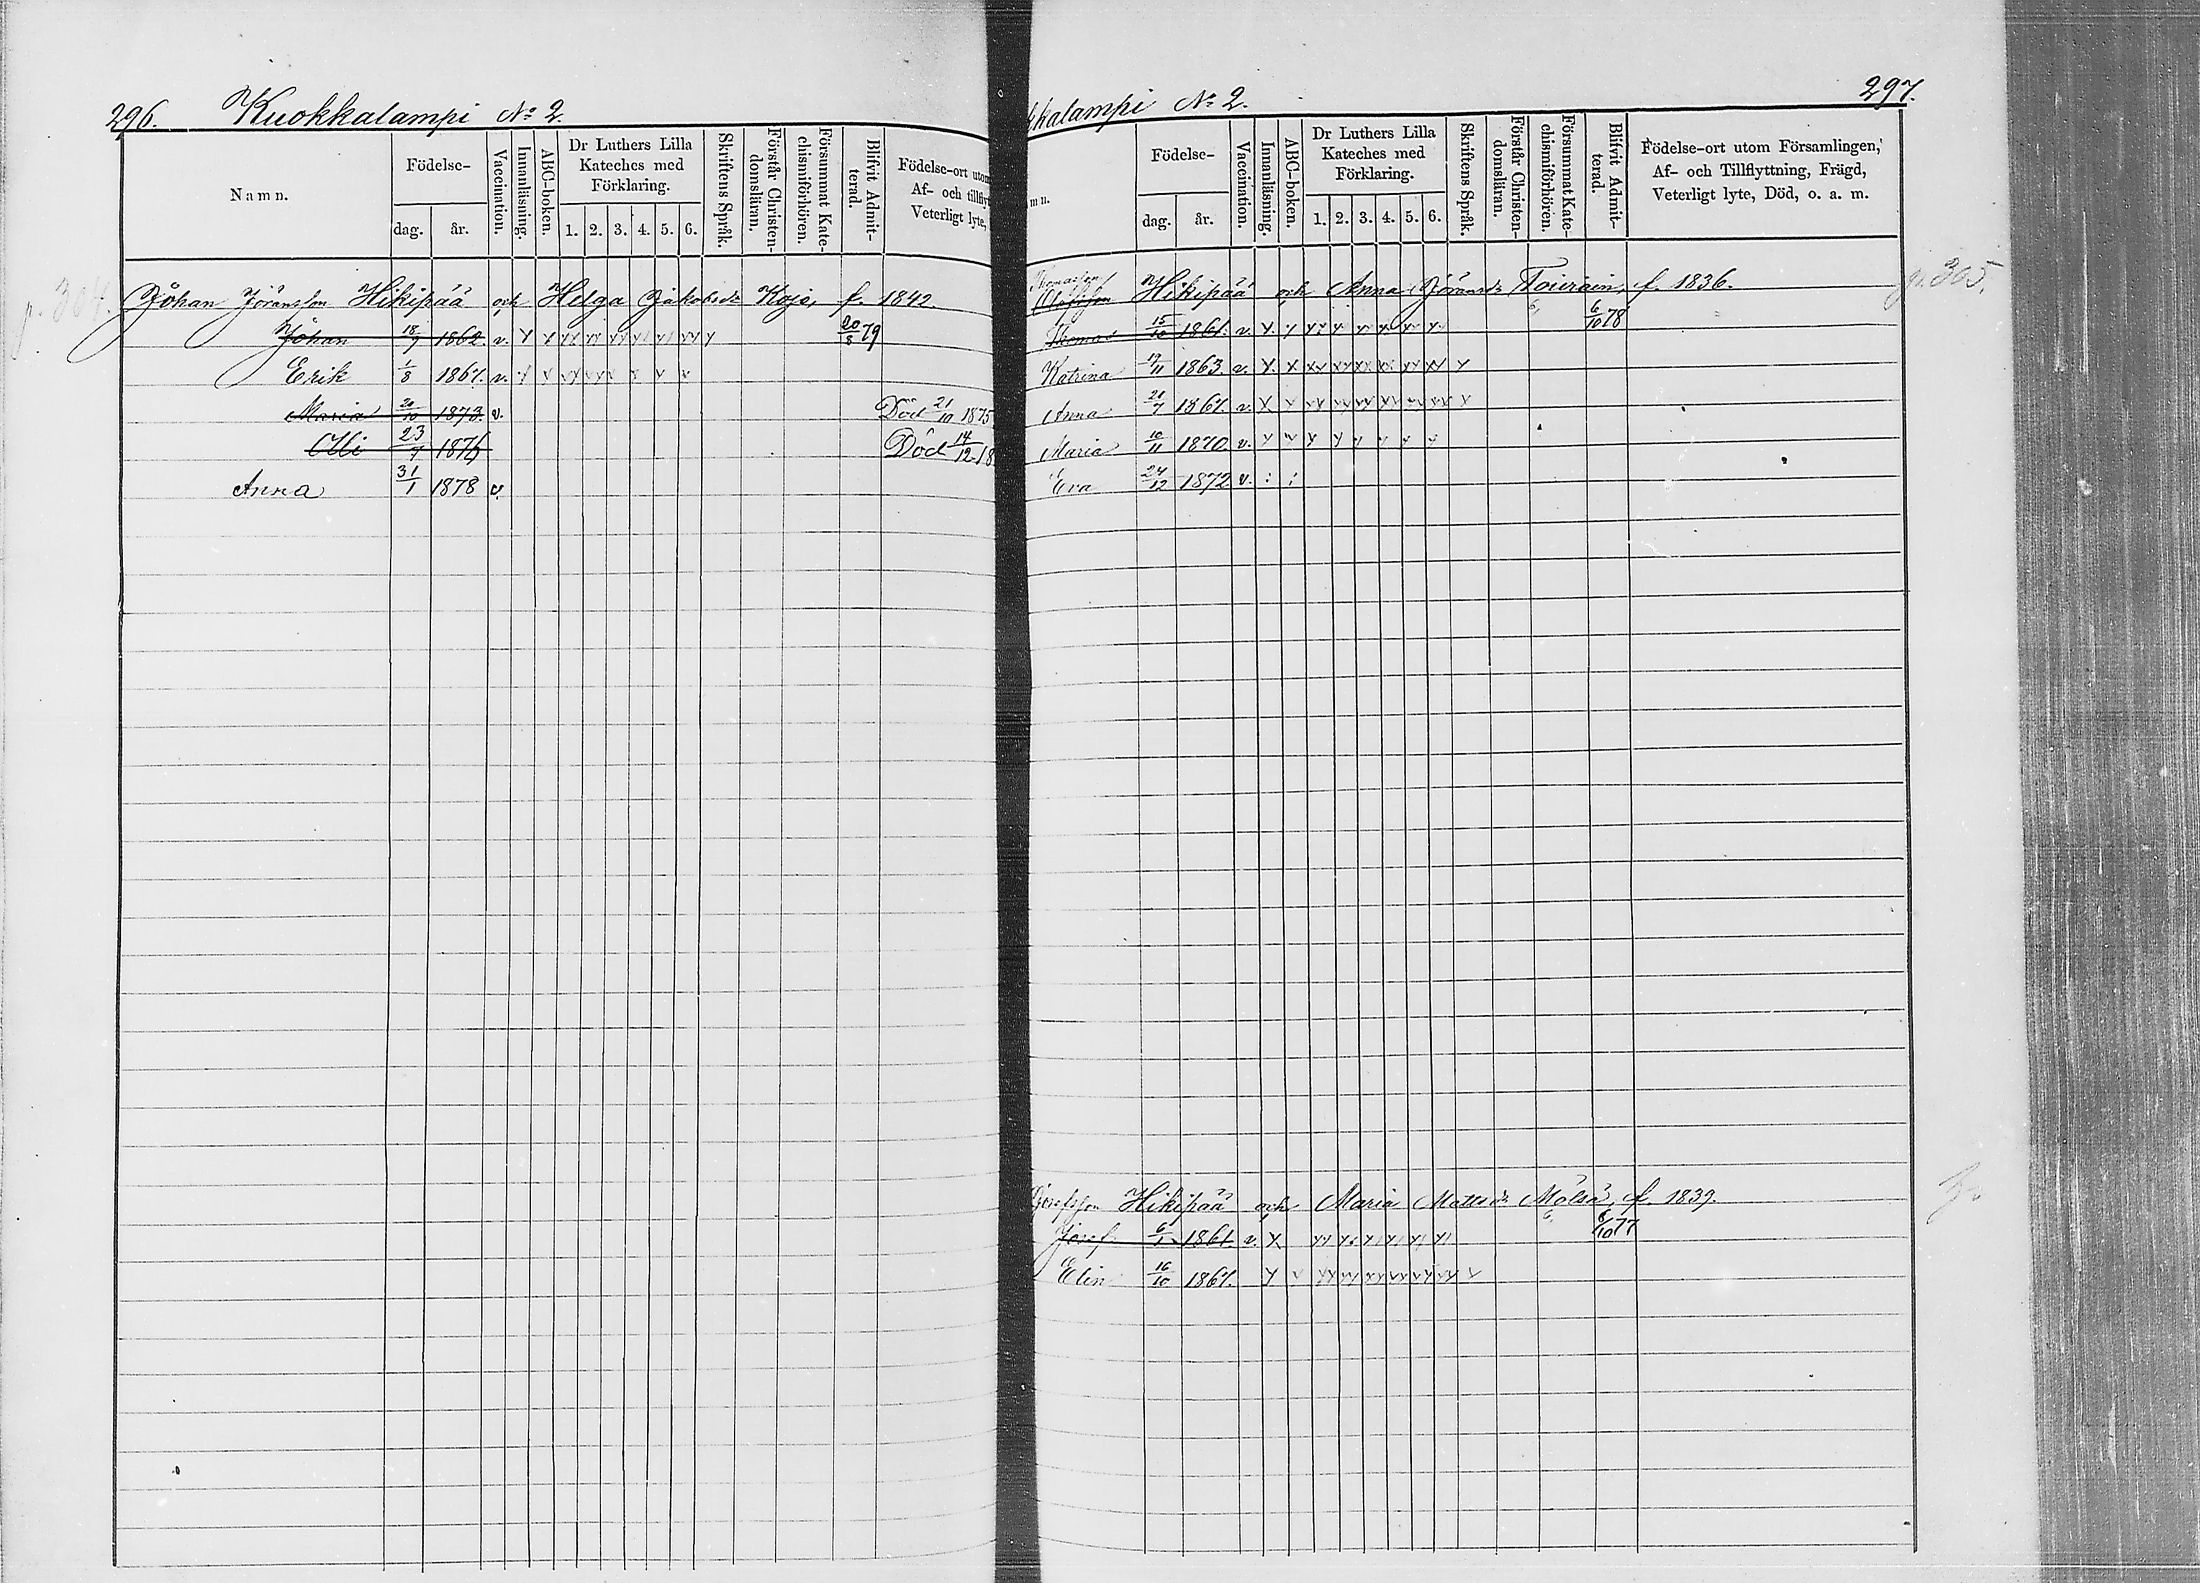 296. Kuokkalampi No 2.
Namn. Födelse- dag. år. Vaccination. Innanläsning. ABC-boken. Dr Luthers Lilla Kateches med Förklaring. 1. 2. 3. 4. 5. 6. Skriftens Språk. Förstår Christen-domsläran. Försummat Kate-chismiförhören. Blifvit Admit-terad. Födelse-ort utom Af- och tillfly Veterligt lyte,
p. 304. Johan Jöransson Hikipää och Helga Jakobsdr Kojo, f. 1842
Johan 18/9 1862 v. 20/8 79
Erik 1/8 1867. v.
Maria 20/10 1873. v. Död 21/10 1875
Olli 23/7 1876 Död 14/12 18
Anna 31/1 1878 v.
kkalampi No 2. 297.
mn. Födelse- dag. år. Vaccination. Innanläsning. ABC-boken. Dr Luthers Lilla Kateches med Förklaring. 1. 2. 3. 4. 5. 6. Skriftens Språk. Förstår Christen-domsläran. Försummat Kate-chismiförhören. Blifvit Admit-terad. Födelse-ort utom Församlingen, Af- och Tillflyttning, Frägd, Veterligt lyte, Död, o. a. m.
Thomasson
Hikipää och Anna Jöransdr Toiviain, f. 1836. p. 305.
Thomas 15/10 1861. v. 6/10 78
Katrina 19/11 1863. v.
Anna 21/7 1867. v.
Maria 10/11 1870. v.
Eva 24/12 1872 v.
Josefsson Hikipää och Maria Mattsdr Mölsä, f. 1839.
Josef 6/1 1861. v. 6/10 77
Elin 16/10 1867.